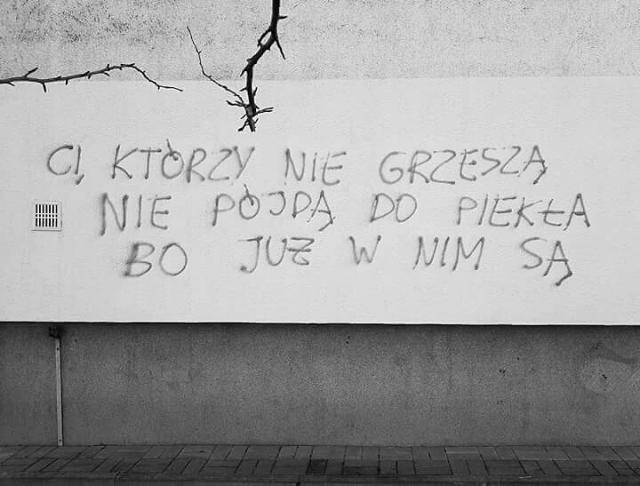 CI, KTÓRZY NIE GRZESZĄ
NIE PÓJDĄ DO PIEKŁA
BO JUŻ W NIM SĄ